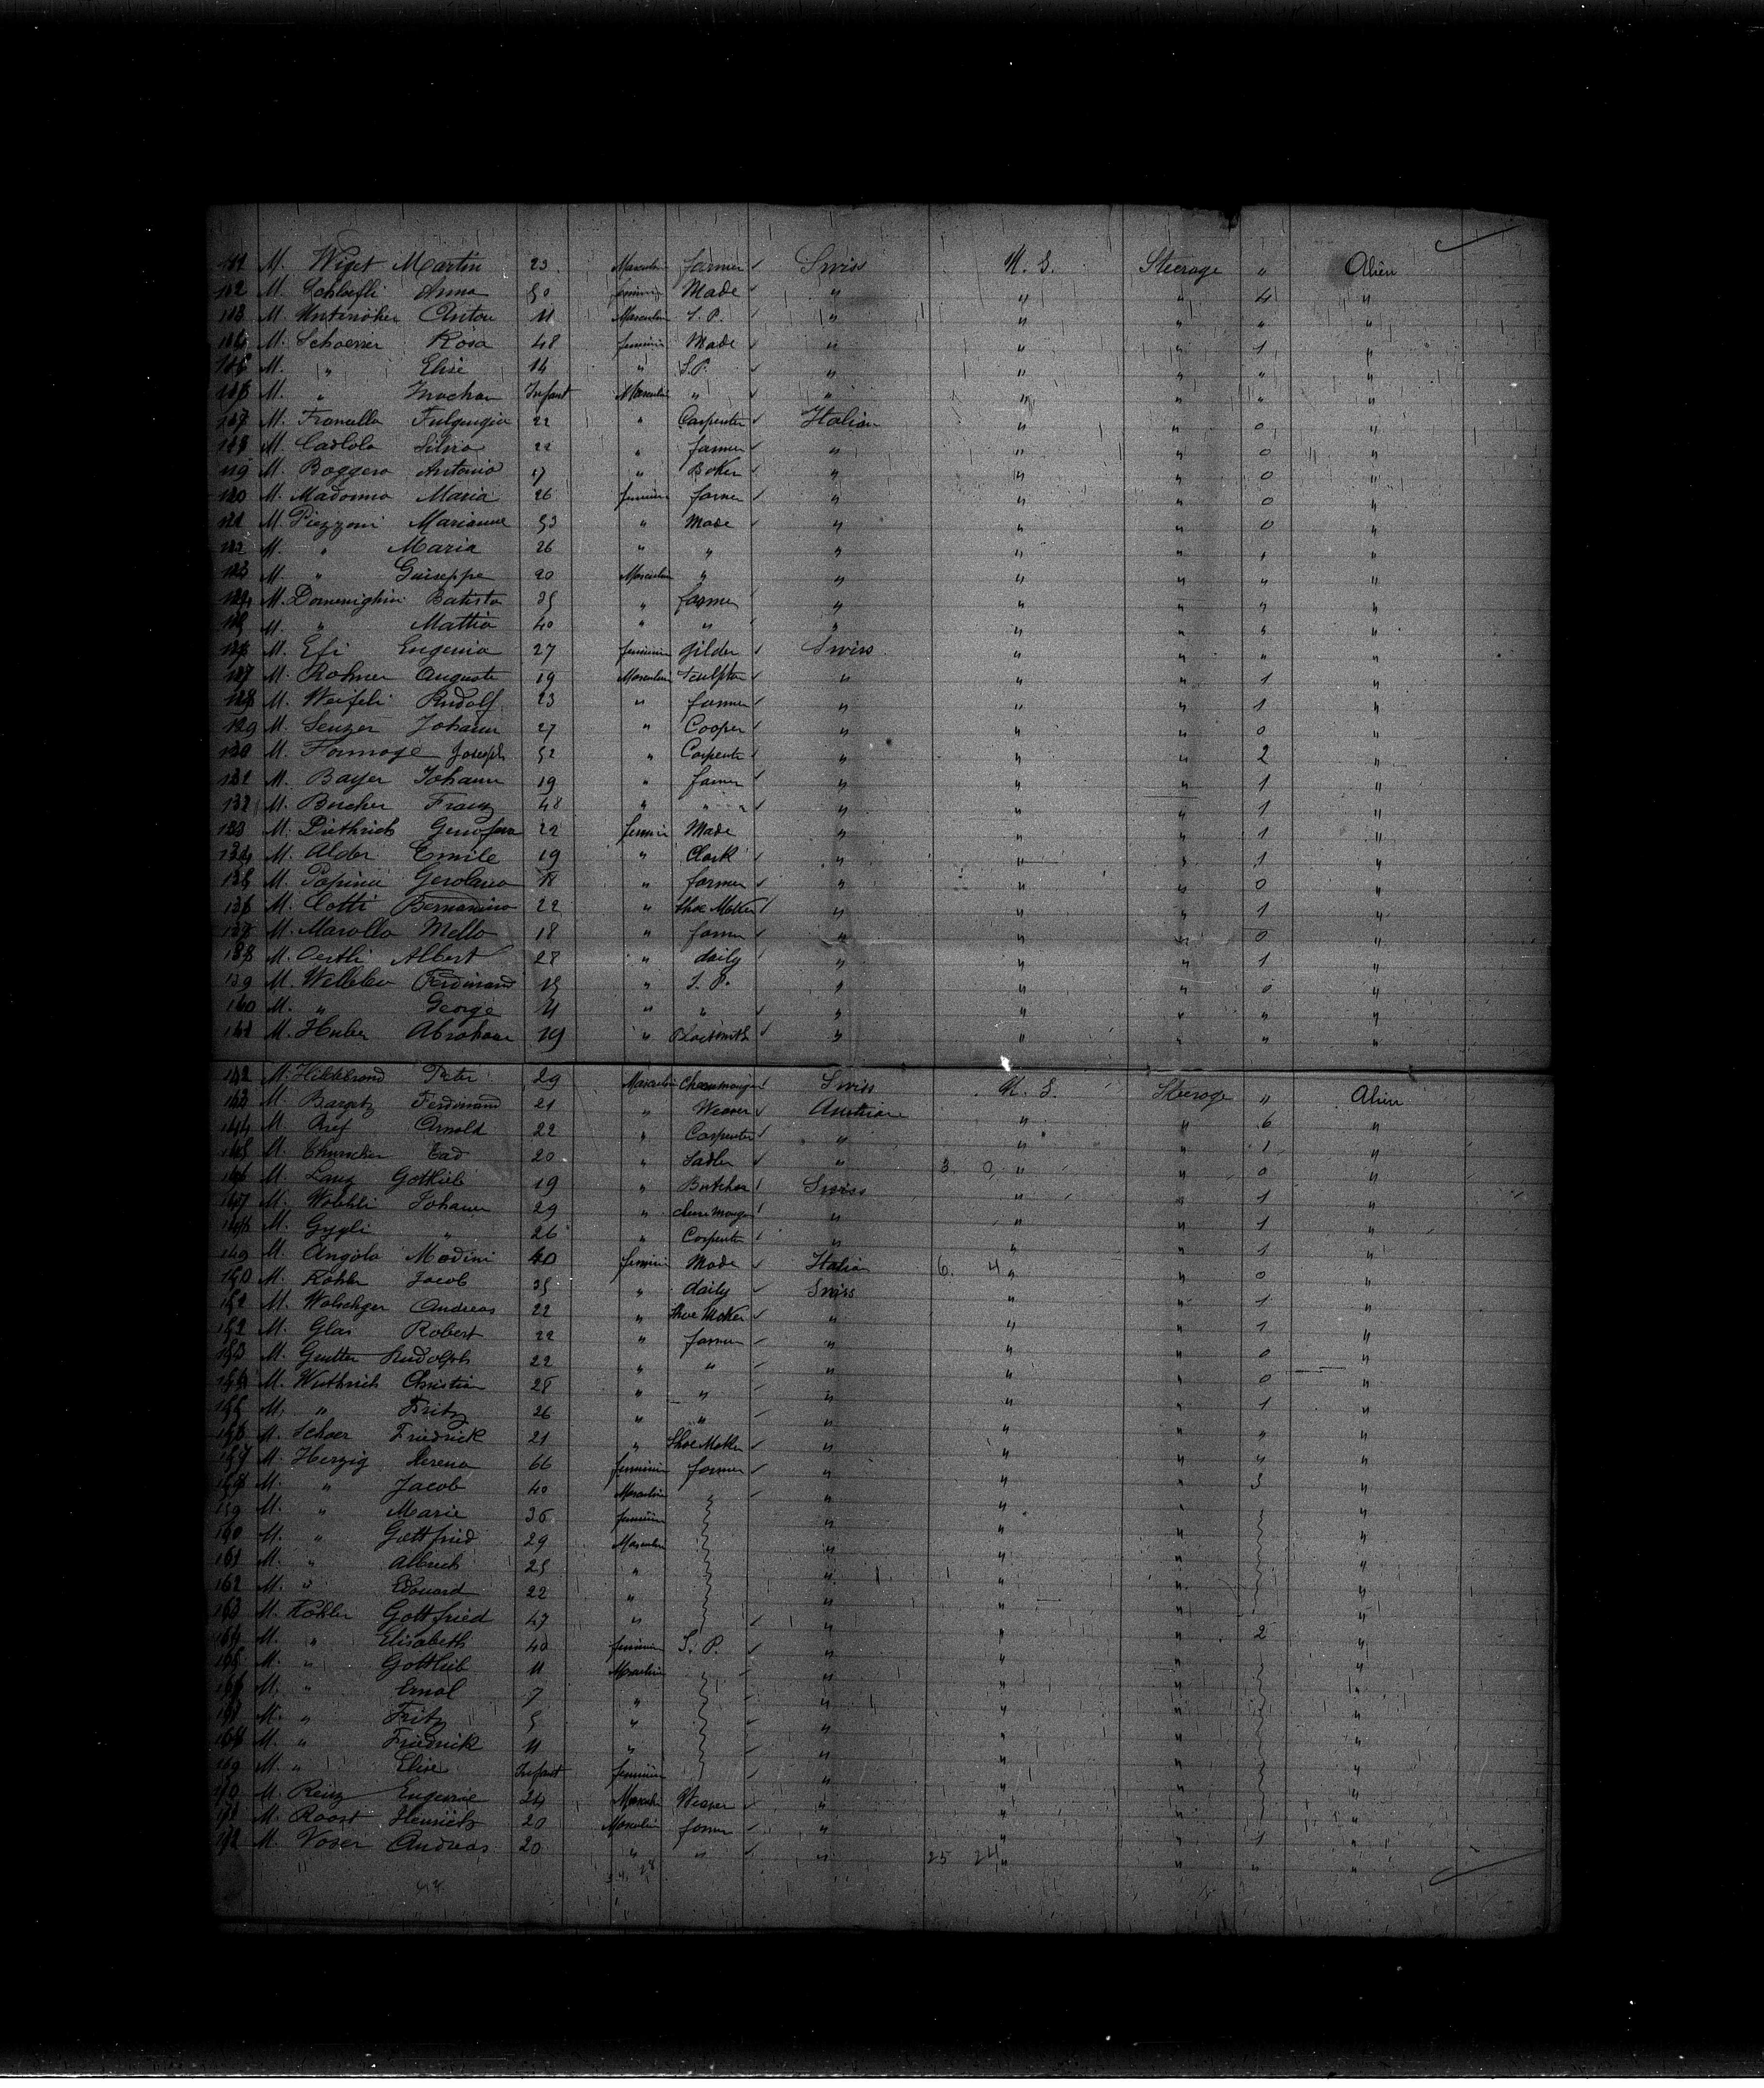 111 M. Wiget Martin 23 Masculin farmer Swiss U. S. Steerage " Alien
112 M. Schloefli Anna 50 feminin Made " " " 4 "
113 M. Anton 11 Masculin S. P. " " " " "
114 M. Schoerrer Rosa 48 feminin Made " " " 1 "
115 M. " Elise 14 " S. P. " " " " "
116 M. " Infant Masculin " " " " " "
117 M. Francella Fulgengio 22 " Carpenter Italian " " 0 "
118 M. Silvio 22 " farmer " " " 0 "
119 M. Boggero Antonio 17 " Baker " " " 0 "
120 M. Madonna Maria 26 feminin farmer " " " 0 "
121 M. Piezzoni Marianne 53 " Made " " " 0 "
122 M. " Maria 26 " " " " " "
123 M. " Guiseppe 20 Masculin " " " " " "
124 M. Domenighini Batista 35 " farmer " " " " "
125 M. " Mattia 40 " " " " " " "
126 M. Efi Eugenia 27 feminin gilder Swiss " " " "
127 M. Rohner Auguste 19 Masculin Sculptor " " " 1 "
128 M. Weifeli Rudolf 23 " farmer " " " 1 "
129 M. Senzer Johann 27 " Cooper " " " 0 "
130 M. Formage Joseph 52 " Carpenter " " " 2 "
131 M. Bayer Johann 19 " farmer " " " 1 "
132 M. Bucher Franz 48 " " " " " 1 "
133 M. Diethrich Genofeva 22 feminin Made " " " 1 "
134 M. Alder Emile 19 " Clark " " " 1 "
135 M. Papinei Gerolamo 18 " farmer " " " 0 "
136 M. Cotti Bernardino 22 " Shoe Maker " " " 1 "
137 M. Marolla Mello 18 " farmer " " " 0 "
138 M. Oertli Albert 28 " daily " " " 1 "
139 M. Ferdinand 15 " S. P. " " " 0 "
140 M. " George 11 " " " " " " "
141 M. Huber Abraham 19 " Blacksmith " " " " "
142 M. Hildebrand Peter 29 Masculin Swiss U. S. Steerage " Alien
143 M. Bargetz Ferdinand 21 " Weaver Austrian " " 6 "
144 M. Ref Arnold 22 " Carpenter " " " 1 "
145 M. 20 " Sadler " 3 0 " " 0 "
146 M. Lang Gottlieb 19 " Butcher Swiss " " 1 "
147 M. Woehhli Johann 29 " " " " 1 "
148 M. Gygli " 26 " Carpenter " " " 1 "
149 M. Angola Modini 40 feminin Made Italian 6. 4 " " 0 "
150 M. Kohler Jacob 35 " daily Swiss " " 1 "
151 M. Walschger Andreas 22 " Shoe Maker " " " 1 "
152 M. Glas Robert 22 " farmer " " " 0 "
153 M. Gutter Rudolph 22 " " " " " 0 "
154 M. Wuthrich Christian 28 " " " " " 1 "
155 M. " Fritz 26 " " " " " " "
156 M. Schaer Friedrick 21 " Shoe Maker " " " " "
157 M. Herzig Verena 66 feminin farmer " " " 5 "
158 M. " Jacob 40 Masculin " " " " "
159 M. " Marie 36 feminin " " " "
160 M. " Gottfried 29 Masculin " " " "
161 M. " Albrech 25 " " " " "
162 M. " Edouard 22 " " " " "
163 M. Kohler Gottfried 47 " " " " 2 "
164 M. " Elisabeth 40 feminin S. P. " " " "
165 M. " Gottlieb 11 Masculin " " " "
166 M. " Ernol 7 " " " " "
167 M. " Fritz 5 " " " " "
168 M. " Friedrick 11 " " " " "
169 M. " Elise Infant feminin " " " "
170 M. Reinz Eugenie 24 Masculin Weaver " " " "
171 M. Roost Heinrich 20 Masculin farmer " " " 1 "
172 M. Voser Andreas 20 " " " 25 24 " " " "